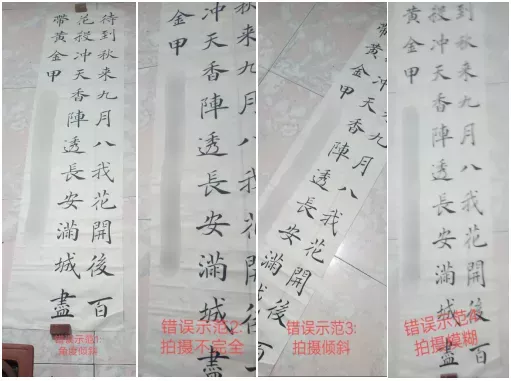 待到秋来九月八我花開後百
花殺冲天香陣透長安滿城盡
帶黄金甲
错误示范1
角度倾斜
秋来九月八我花開後
冲天香陣透長安滿城盡
金甲
错误示范2:
拍摄不完全
九月八我花開後
冲天香陣透長安
帶黄金甲
错误示范3:
拍摄倾斜
到秋来九月八我花開後百
殺冲天香陣透長安滿城盡
黄金甲
错误示范4:
拍摄模糊